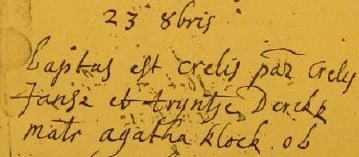 23 8bris
baptus est crelis par Crelis
Janse et tryntje Dercks
matr agatha klock. ob